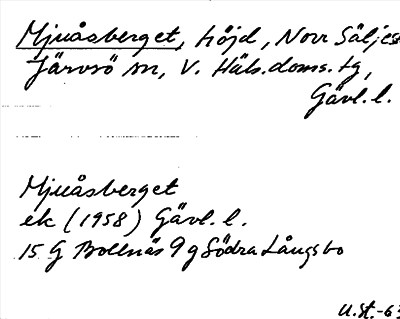 Mjuåsberget, höjd, Norr Säljes
Järvsö sn, V. Häls. doms. tg,
Gävl. l.
Mjuåsberget
ek (1958) Gävl. l.
15 G Bollnäs 9 g Södra Långsbo
U. St. -63